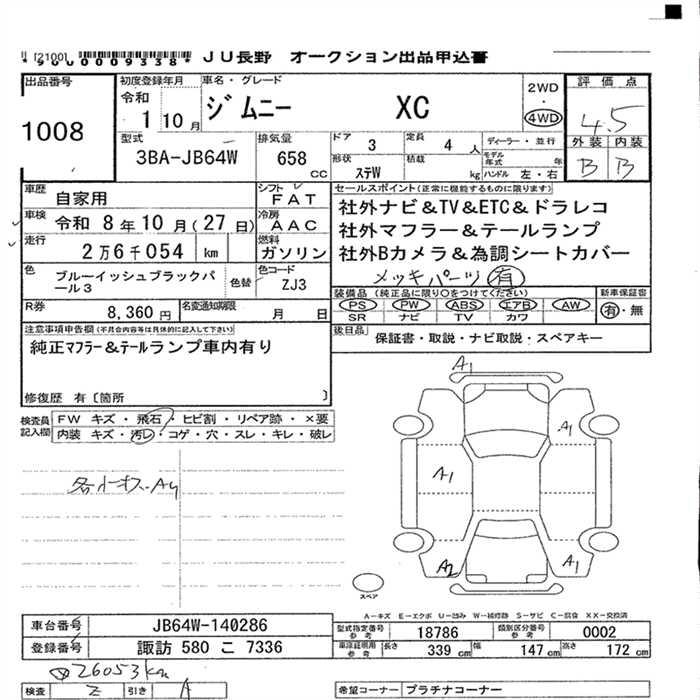 [2100] *9000009338* JU長野 オークション出品申込書
出品番号
1008
初度登録年月
令和
1 10月
車名・グレード
ジムニー XC
2WD
・
4WD
評価点
4.5
外装 内装
B B
型式
3BA-JB64W
排気量
658
CC
ドア 3
定員 4 人
ディーラー・並行
形状 ステW
積載 kg
モデル年式 年
ハンドル 左・右
車歴 自家用
シフト FAT
車検 令和 8年10月(27日)
冷房 AAC
走行 2万6千054 km
燃料 ガソリン
色 ブルーイッシュブラックパール3
色替
色コード ZJ3
R券 8,360円
名変通知期限 月 日
セールスポイント(正常に機能するものに限ります)
社外ナビ&TV&ETC&ドラレコ
社外マフラー&テールランプ
社外Bカメラ&為調シートカバー
メッキパーツ 有
装備品(純正品に限り○をつけてください)
PS PW ABS エアB AW
SR ナビ TV カワ
新車保証書
有・無
後日品 保証書・取説・ナビ取説・スペアキー
注意事項申告欄(不具合内容等は具体的に記入して下さい)
純正マフラー&テールランプ車内有り
修復歴 有〔箇所 〕
検査員記入欄
FW キズ・飛石・ヒビ割・リペア跡・×要
内装 キズ・汚レ・コゲ・穴・スレ・キレ・破レ
A1
A1
A1
A2
A1
スペア
A-キズ E-エクボ U-凹み W-補修跡 S-サビ C-腐食 XX-交換済
車台番号 JB64W-140286
登録番号 諏訪 580 こ 7336
型式指定番号 参考 18786
類別区分番号 参考 0002
車庫証明用 参考 長さ 339 cm 幅 147 cm 高さ 172 cm
26053km
検査 Z 引き A
希望コーナー プラチナコーナー